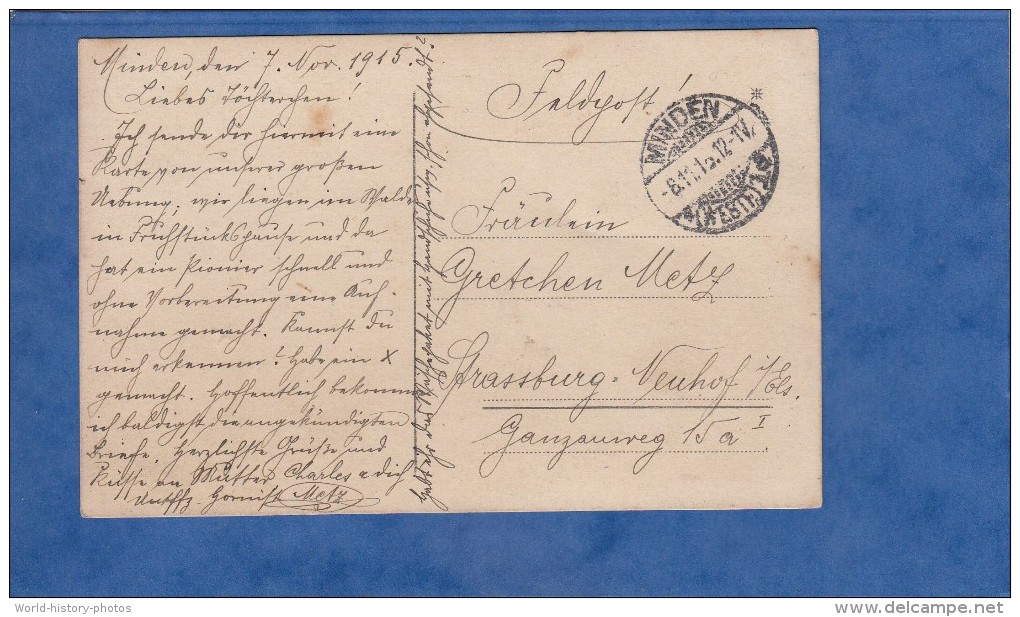 Minden, den 7. Nov. 1915.
Liebes Töchterchen!
Ich sende dir hiermit eine
Karte von unserer großen
Uebung, wir liegen im Walde
in Frühstückspause und da
hat ein Pionier schnell und
ohne Vorbereitung eine Auf-
nahme gemacht. Kannst du
mich erkennen? Habe ein X
gemacht. Hoffentlich bekomme
ich baldigst die angekündigten
Briefe. Herzlichste Grüße und
Küsse an Mutter Charles u dich
Untffz. Hornist Metz
Habt ihr das mit schon abgesandt?
Feldpost!
MINDEN
-8.11.15.12-1V.
(WESTF.)
Fräulein
Gretchen Metz
Strassburg-Neuhof i/Els.
Ganzauweg 15a I
World-history-photos
http://www.delcampe.net